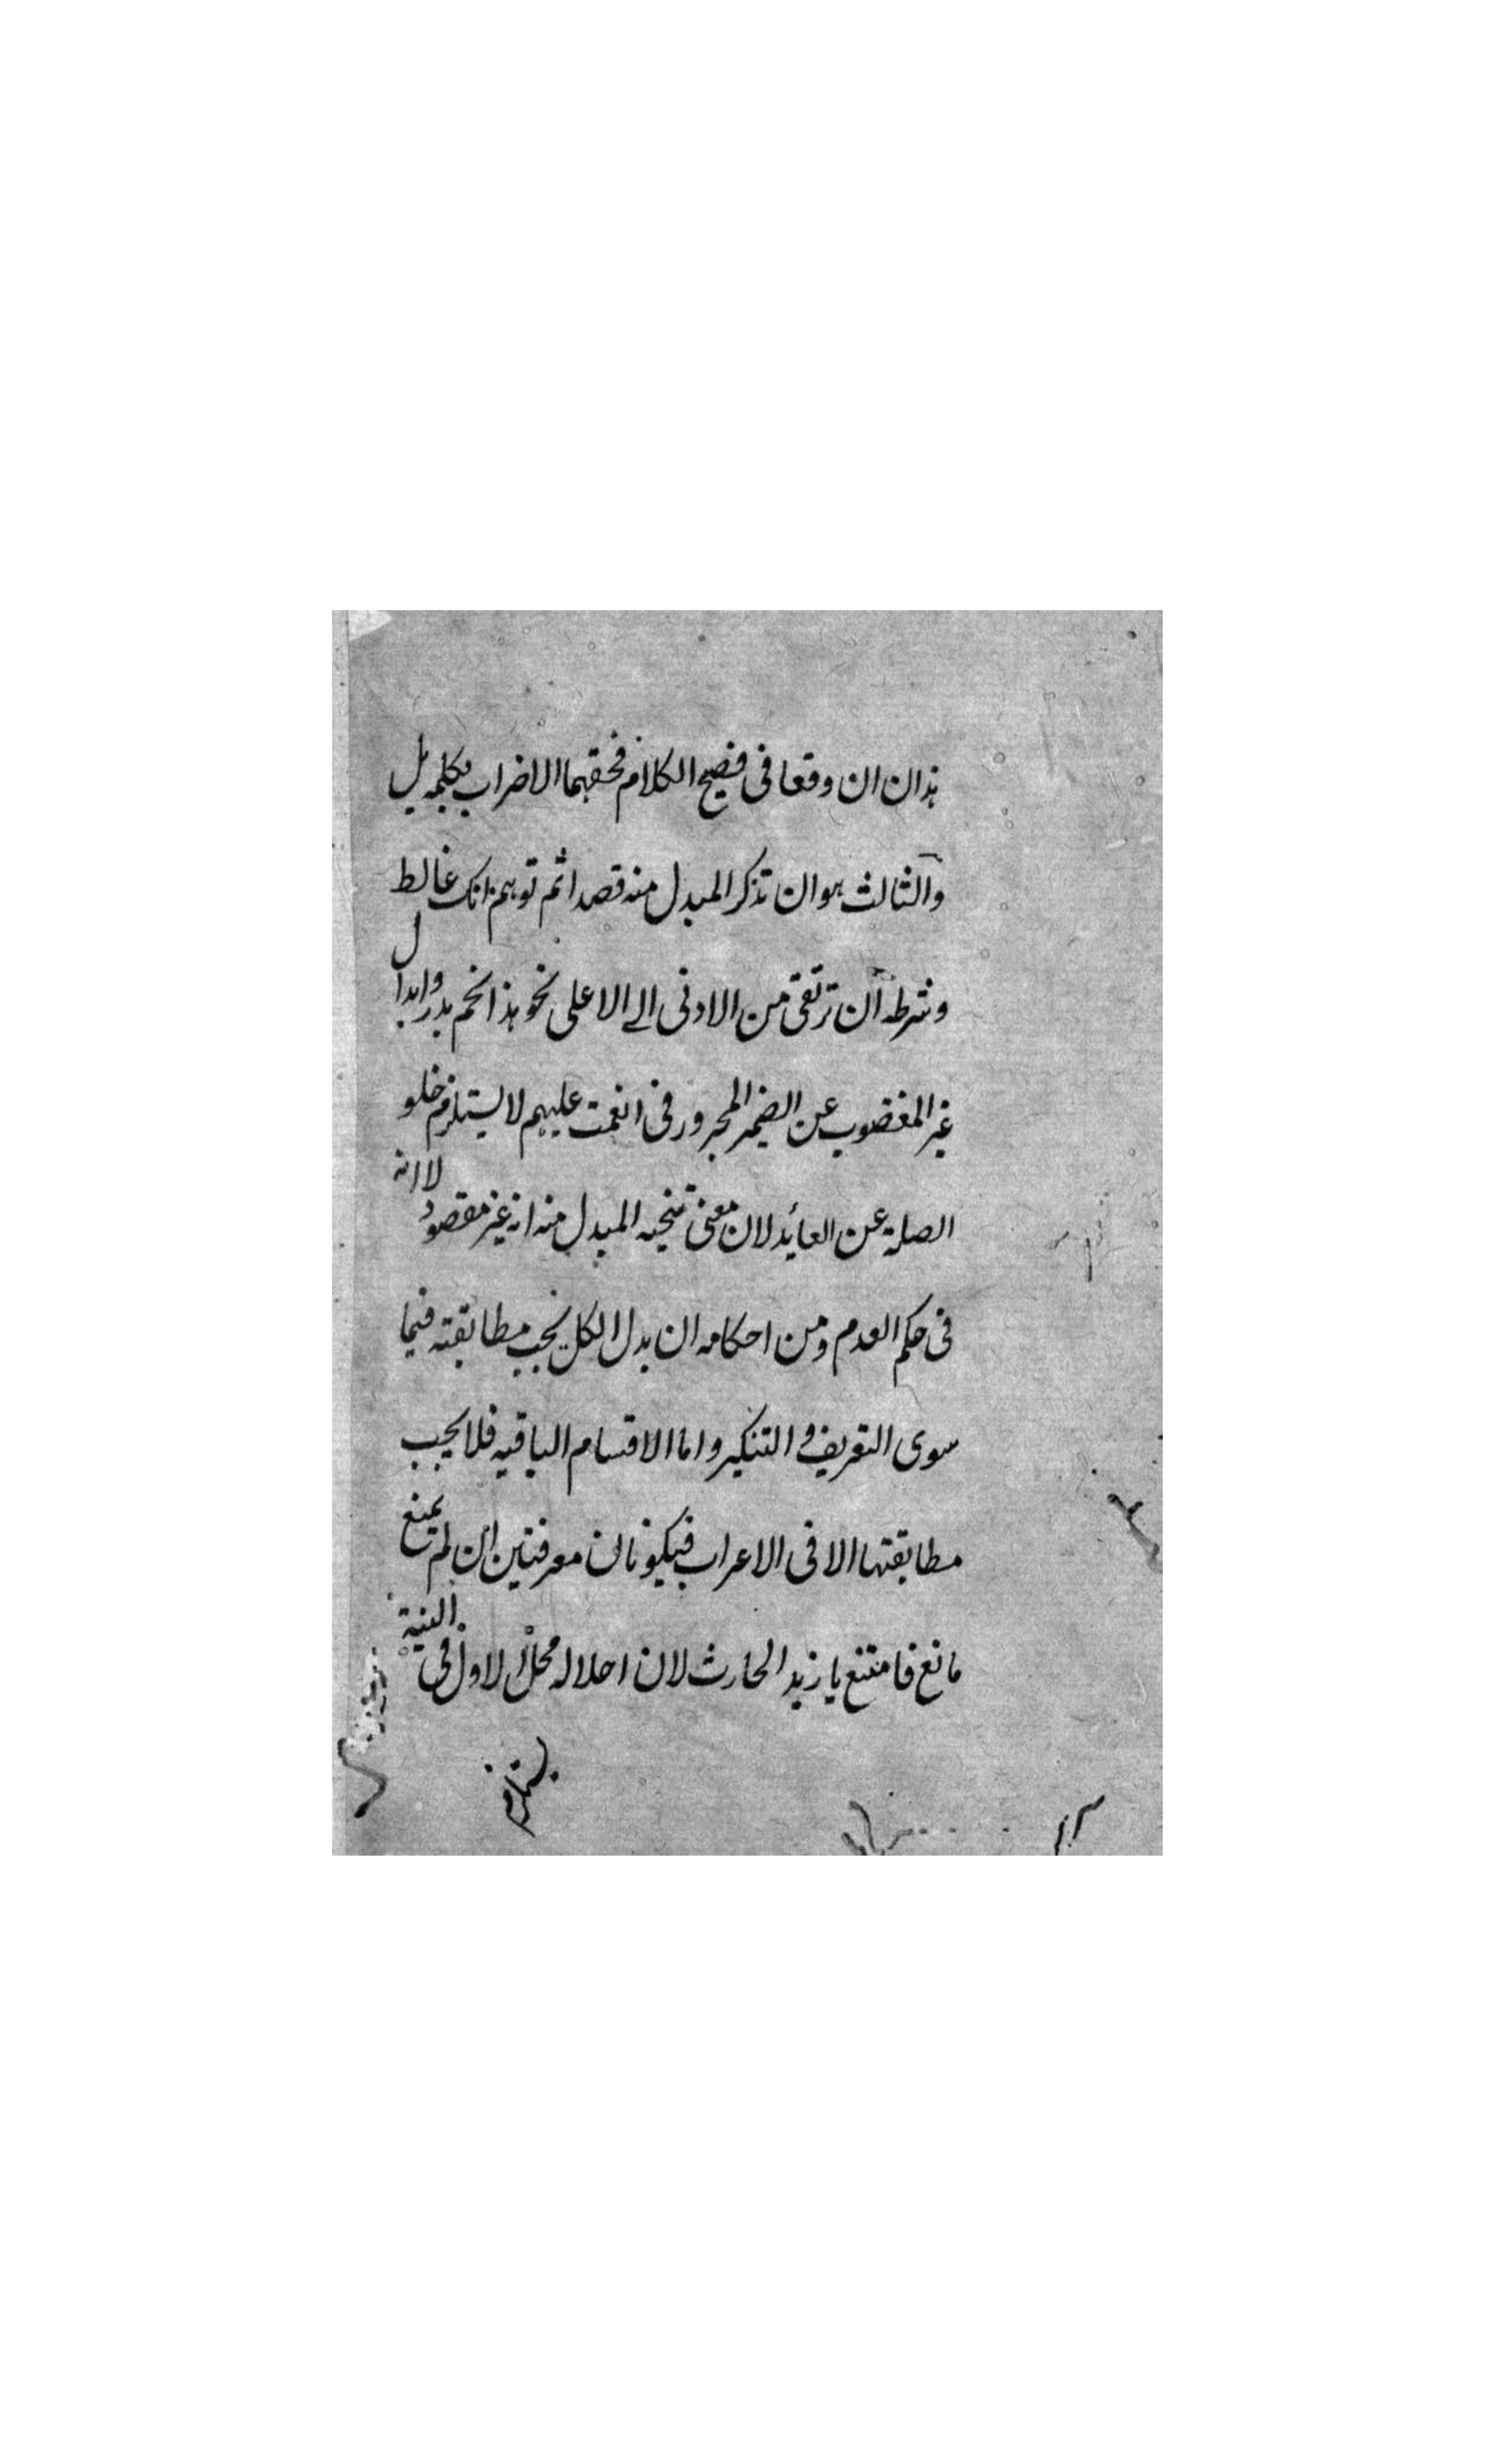 هذان ان وقعا فى فصيح الكلام فحقهما الاضراب بكلمه بل
والثالث هو ان تذكر المبدل منه قصدا ثم توهم انك غالط
وشرطه ان ترتقى من الادنى الى الاعلى نحو هذا نجم بدر وابدال
غير المغضوب عن الضمير المجرور فى انعمت عليهم لا يستلزم خلو
الصلة عن العائد لان معنى تنحيه المبدل منه انه غير مقصود لا انه
فى حكم العدم ومن احكامه ان بدل الكل يجب مطابقته فيما
سوى التعريف و التنكير واما الاقسام الباقيه فلا يجب
مطابقتها الا فى الاعراب فيكونان معرفتين ان لم يمنع
مانع فامتنع يا زيد الحارث لان احلاله محل الاول فى النية
يستلزم